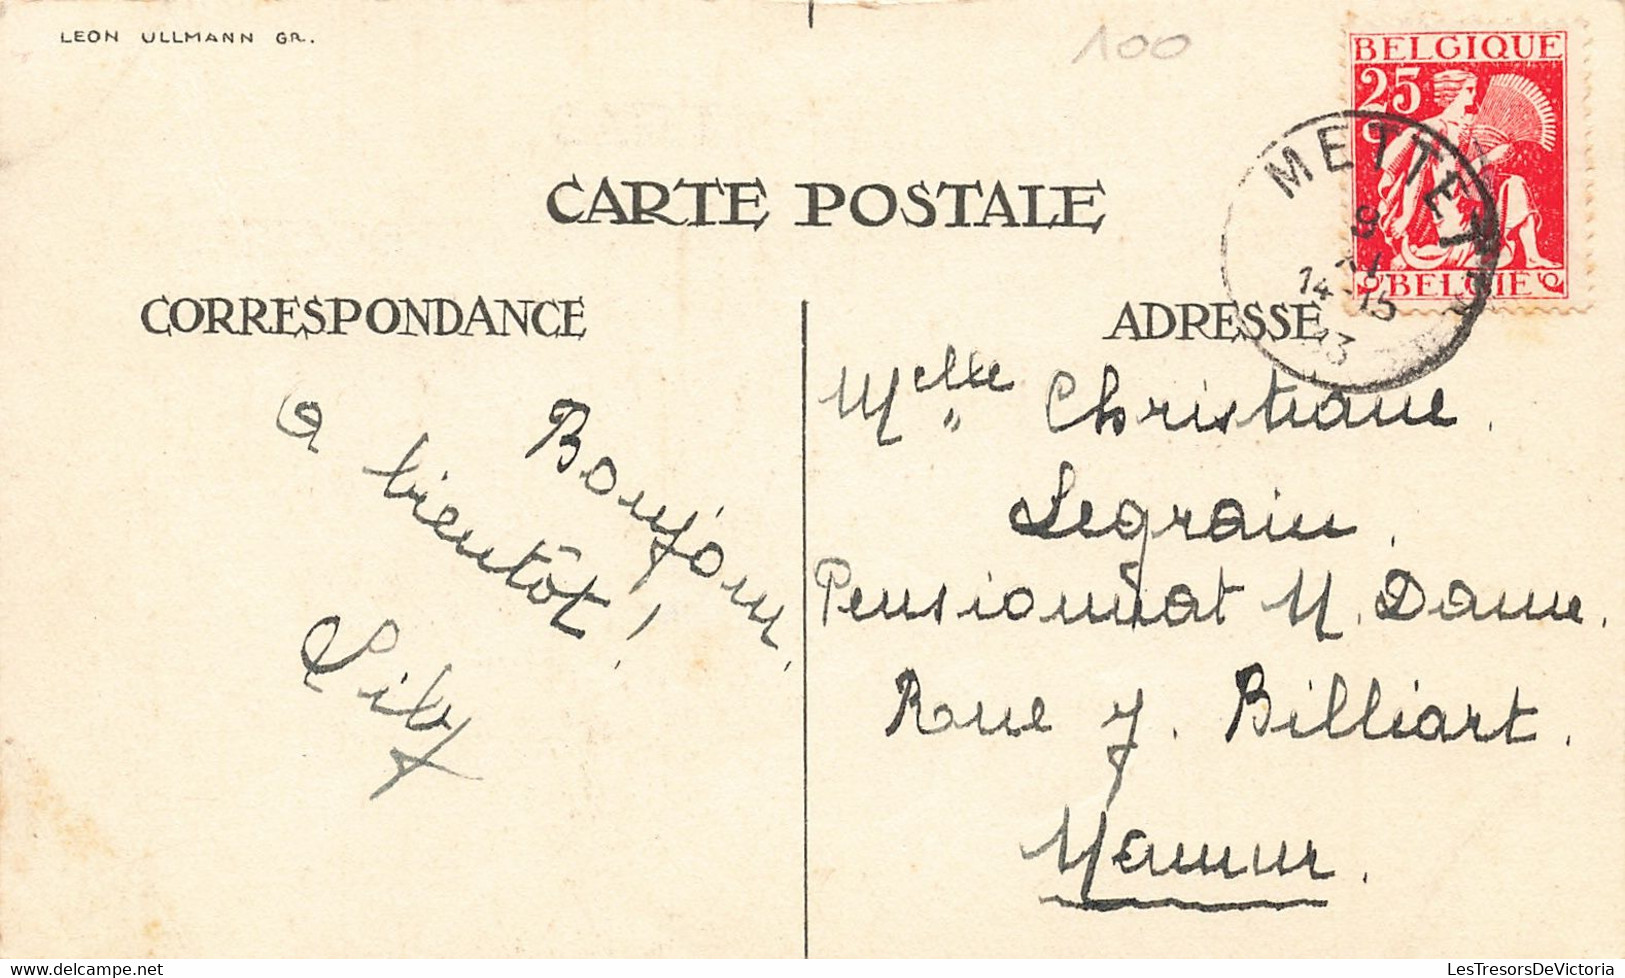 LEON ULLMANN GR.
100
BELGIQUE
25
BELGIE
METTET
9
XI
14-15
33
CARTE POSTALE
CORRESPONDANCE
ADRESSE
Bonjour,
A bientôt !
Lily
Melle Christiane
Legrain.
Pensionnat N. Dame.
Rue J. Billiart.
Namur.
LesTresorsDeVictoria
www.delcampe.net